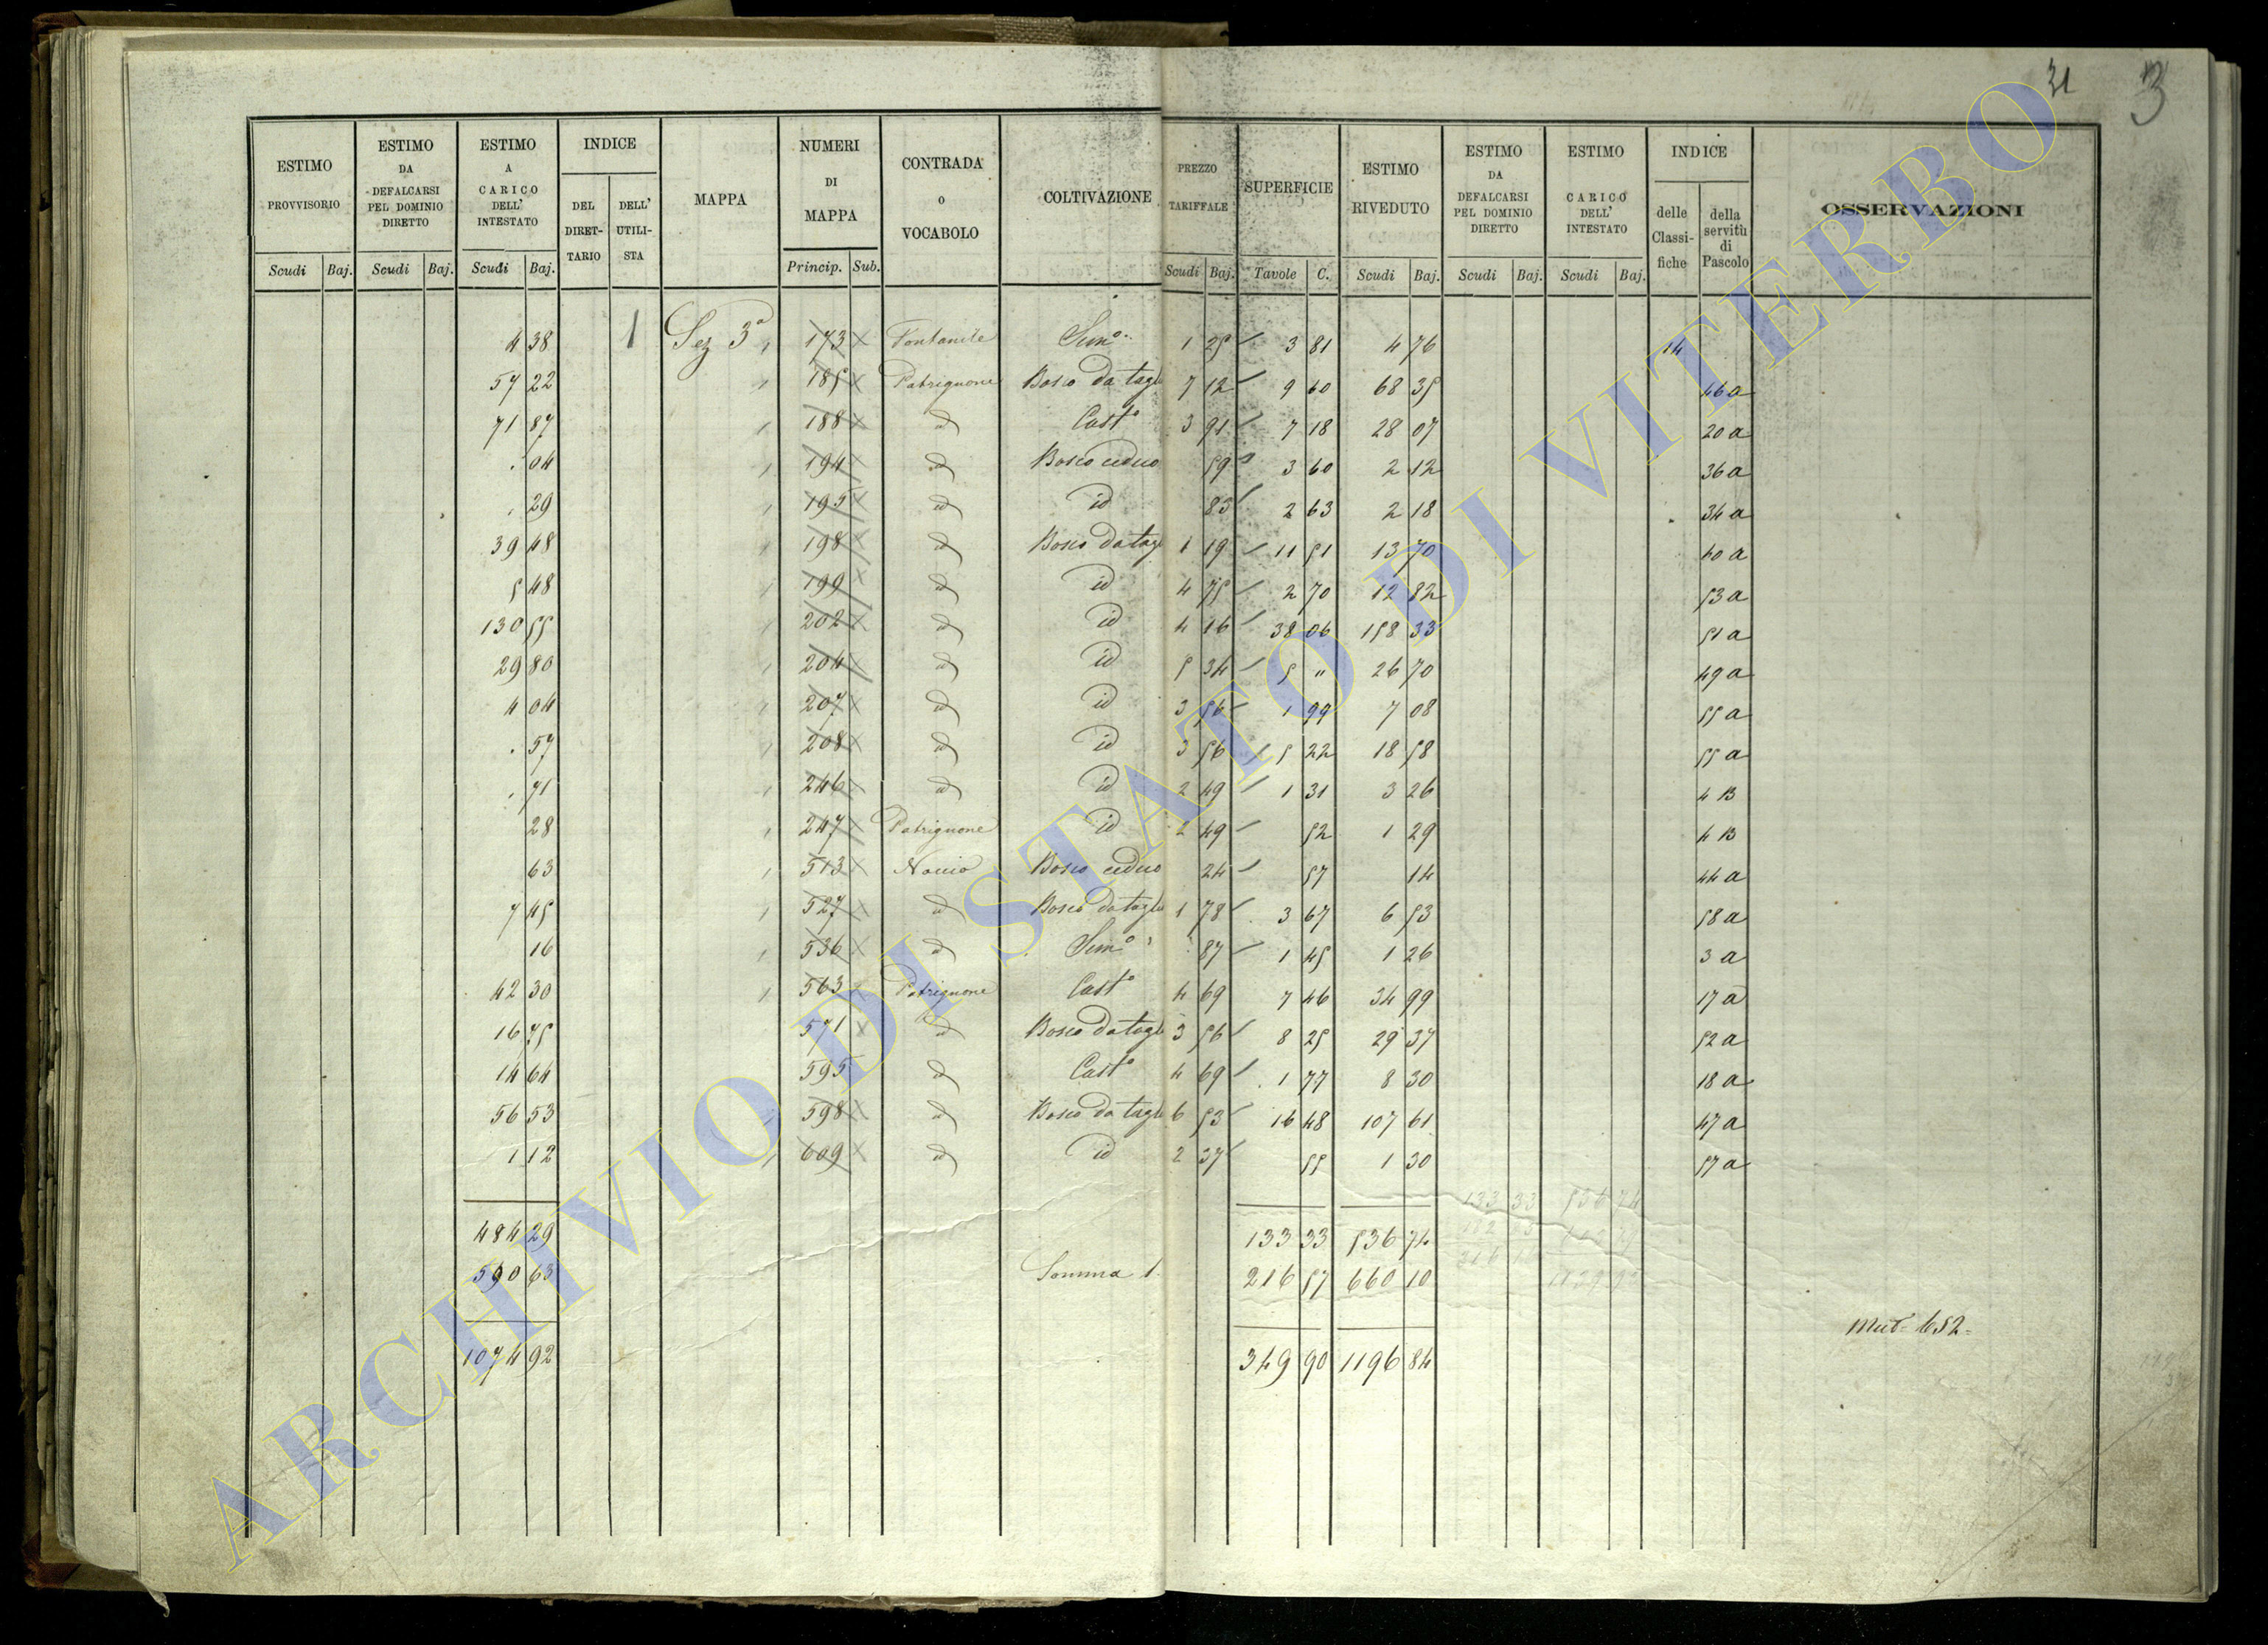 31 3
ESTIMO PROVVISORIO
ESTIMO DA DEFALCARSI PEL DOMINIO DIRETTO
ESTIMO A CARICO DELL' INTESTATO
INDICE
DEL DIRET-TARIO
DELL' UTILI-STA
MAPPA
NUMERI DI MAPPA
CONTRADA o VOCABOLO
COLTIVAZIONE
PREZZO TARIFFALE
SUPERFICIE
ESTIMO RIVEDUTO
ESTIMO DA DEFALCARSI PEL DOMINIO DIRETTO
ESTIMO CARICO DELL' INTESTATO
INDICE
delle Classi-fiche
della servitù di Pascolo
OSSERVAZIONI
Scudi Baj. Scudi Baj. Scudi Baj. Princip. Sub. Scudi Baj. Tavole C. Scudi Baj. Scudi Baj. Scudi Baj.
4 38 1 Sez 3ª 173 Fontanile Semº 1 25 3 81 4 76 14
57 22 185 Patrignone Bosco da tagl 7 12 9 60 68 35 46 a
71 87 188 id Castº 3 91 7 18 28 07 20 a
. 04 194 id Bosco ceduo 59 3 60 2 12 36 a
. 29 195 id id 83 2 63 2 18 34 a
39 48 198 id Bosco da tag 1 19 11 51 13 70 60 a
5 48 199 id id 4 75 2 70 12 82 53 a
130 55 202 id id 4 16 38 06 158 33 51 a
29 80 204 id id 5 34 5 " 26 70 49 a
4 04 207 id id 3 56 1 99 7 08 55 a
. 57 208 id id 3 56 5 22 18 58 55 a
. 71 246 id id 2 49 1 31 3 26 4 B
28 247 Patrignone id 2 49 52 1 29 4 B
63 513 Noccio Bosco ceduo 24 57 14 44 a
7 45 527 id Bosco da tagl 1 78 3 67 6 53 58 a
16 536 id Semº 87 1 45 1 26 3 a
42 30 563 Patrignone Castº 4 69 7 46 34 99 17 a
16 75 571 id Bosco da tagl 3 56 8 25 29 37 52 a
14 64 595 id Castº 4 69 1 77 8 30 18 a
56 53 598 id Bosco da tagl 6 53 16 48 107 61 47 a
1 12 609 id id 2 37 55 1 30 57 a
133 33 536 74
484 29 133 33 536 74
590 63 Somma 1. 216 57 660 10
Mut. 652
1074 92 349 90 1196 84
ARCHIVIO DI STATO DI VITERBO